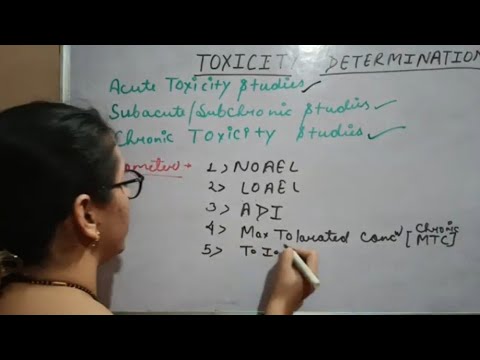 TOXICITY DETERMINATION
Acute Toxicity Studies ✓
Subacute/Subchronic Studies ✓
Chronic TOXICITY Studies ✓
1> NOAEL
2> LOAEL
3> ADI
4> Max Tolarated Concn [Chronic MTC]
5>